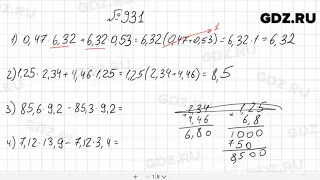 GDZ.RU
№931
1) 0,47·6,32+6,32·0,53=6,32(0,47+0,53)=6,32·1=6,32
1
2) 1,25·2,34+4,46·1,25=1,25(2,34+4,46)=8,5
3) 85,6·9,2-85,3·9,2=
4) 7,12·13,9-7,12·3,4=
2,34
+4,46
6,80
1,25
× 6,8
1000
750
8500